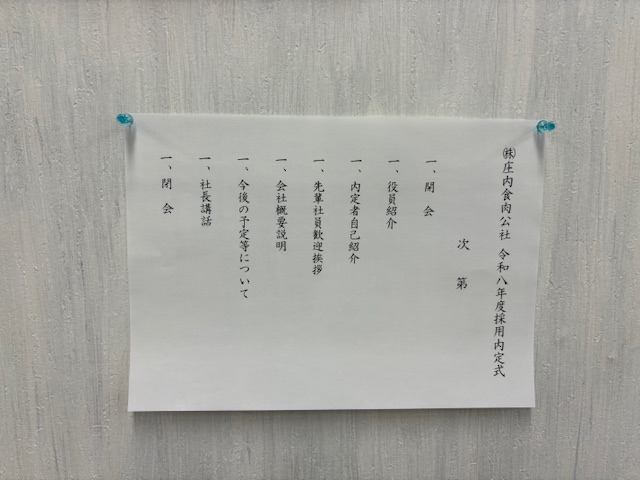 ㈱庄内食肉公社 令和八年度採用内定式
次第
一、開会
一、役員紹介
一、内定者自己紹介
一、先輩社員歓迎挨拶
一、会社概要説明
一、今後の予定等について
一、社長講話
一、閉会